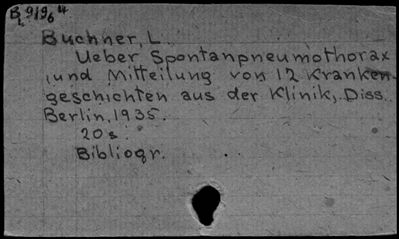 B 9196⁴
Buchner, L.
Ueber Spontanpneumothorax
und Mitteilung von 12 Kranken-
geschichten aus der Klinik, Diss.
Berlin, 1935.
20 s.
Bibliogr.